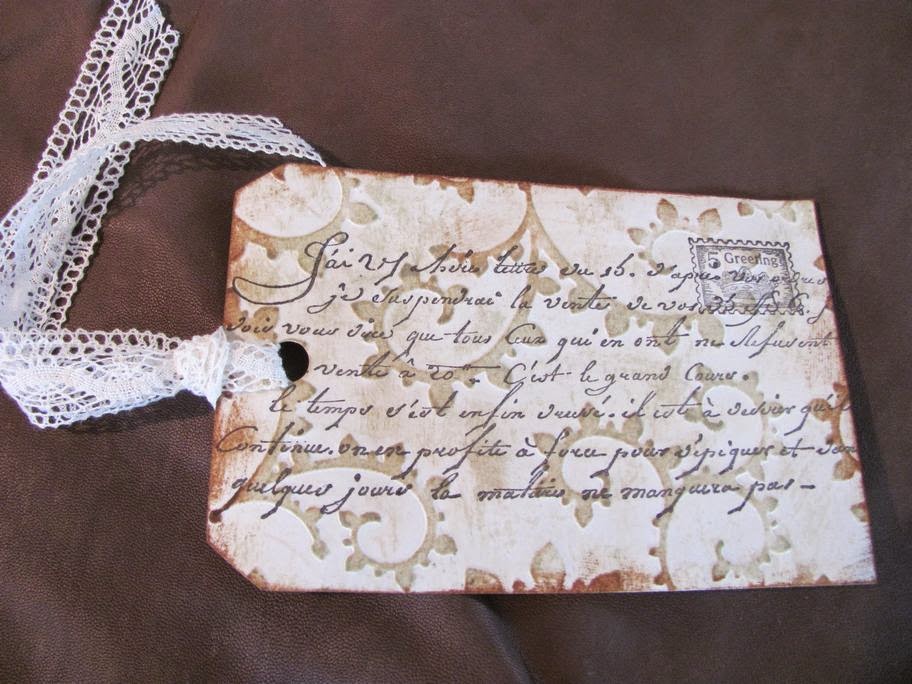 J'ai votre lettre du 15. d'après vos ordres
5 Greeting
je suspendrai la vente de vos
vois vous dire que tous ceux qui en ont ne refusent
vente à 20 C'est le grand Cours.
le temps s'est enfin il est à désirer qu'il
Continue. on en profite à force pour dépiquer et dans
quelques jours la matière ne manquera pas –